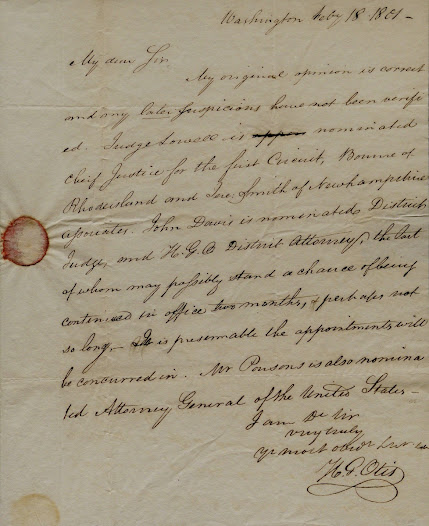 Washington Feby 18 1801 –
My dear Sir.
My original opinion is correct
and my later suspicions have not been verifi
ed. Judge Lowell is nominated
Chief Justice for the first Circuit, Bourne of
Rhodeisland and Jere. Smith of Newhampshire
associates. John Davis is nominated District
Judge, and H.G.O District Attorney, the last
of whom may possibly stand a chance of being
continued in office two months, & perhaps not
so long. – It is presumable the appointments will
be concurred in. Mr Parsons is also nomina
ted Attorney General of the United States –
I am Dr Sir
very truly
Yr most obedt Servt
H. G. Otis